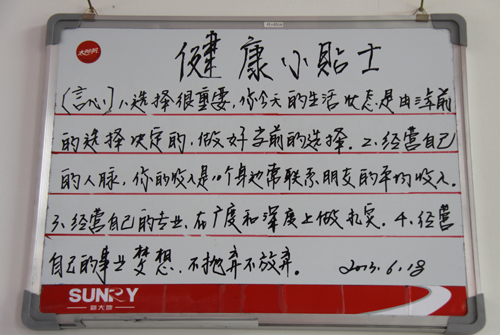 健康小貼士
(言心)1、选择很重要,你今天的生活状态是由三年前
的选择决定的,做好当前的选择。2、经营自己
的人脉,你的收入是10个身边常联系朋友的平均收入。
3、经营自己的专业,在广度和深度上做扎实。4、经营
自己的事业梦想,不抛弃不放弃。 2013.6.18
SUNRY